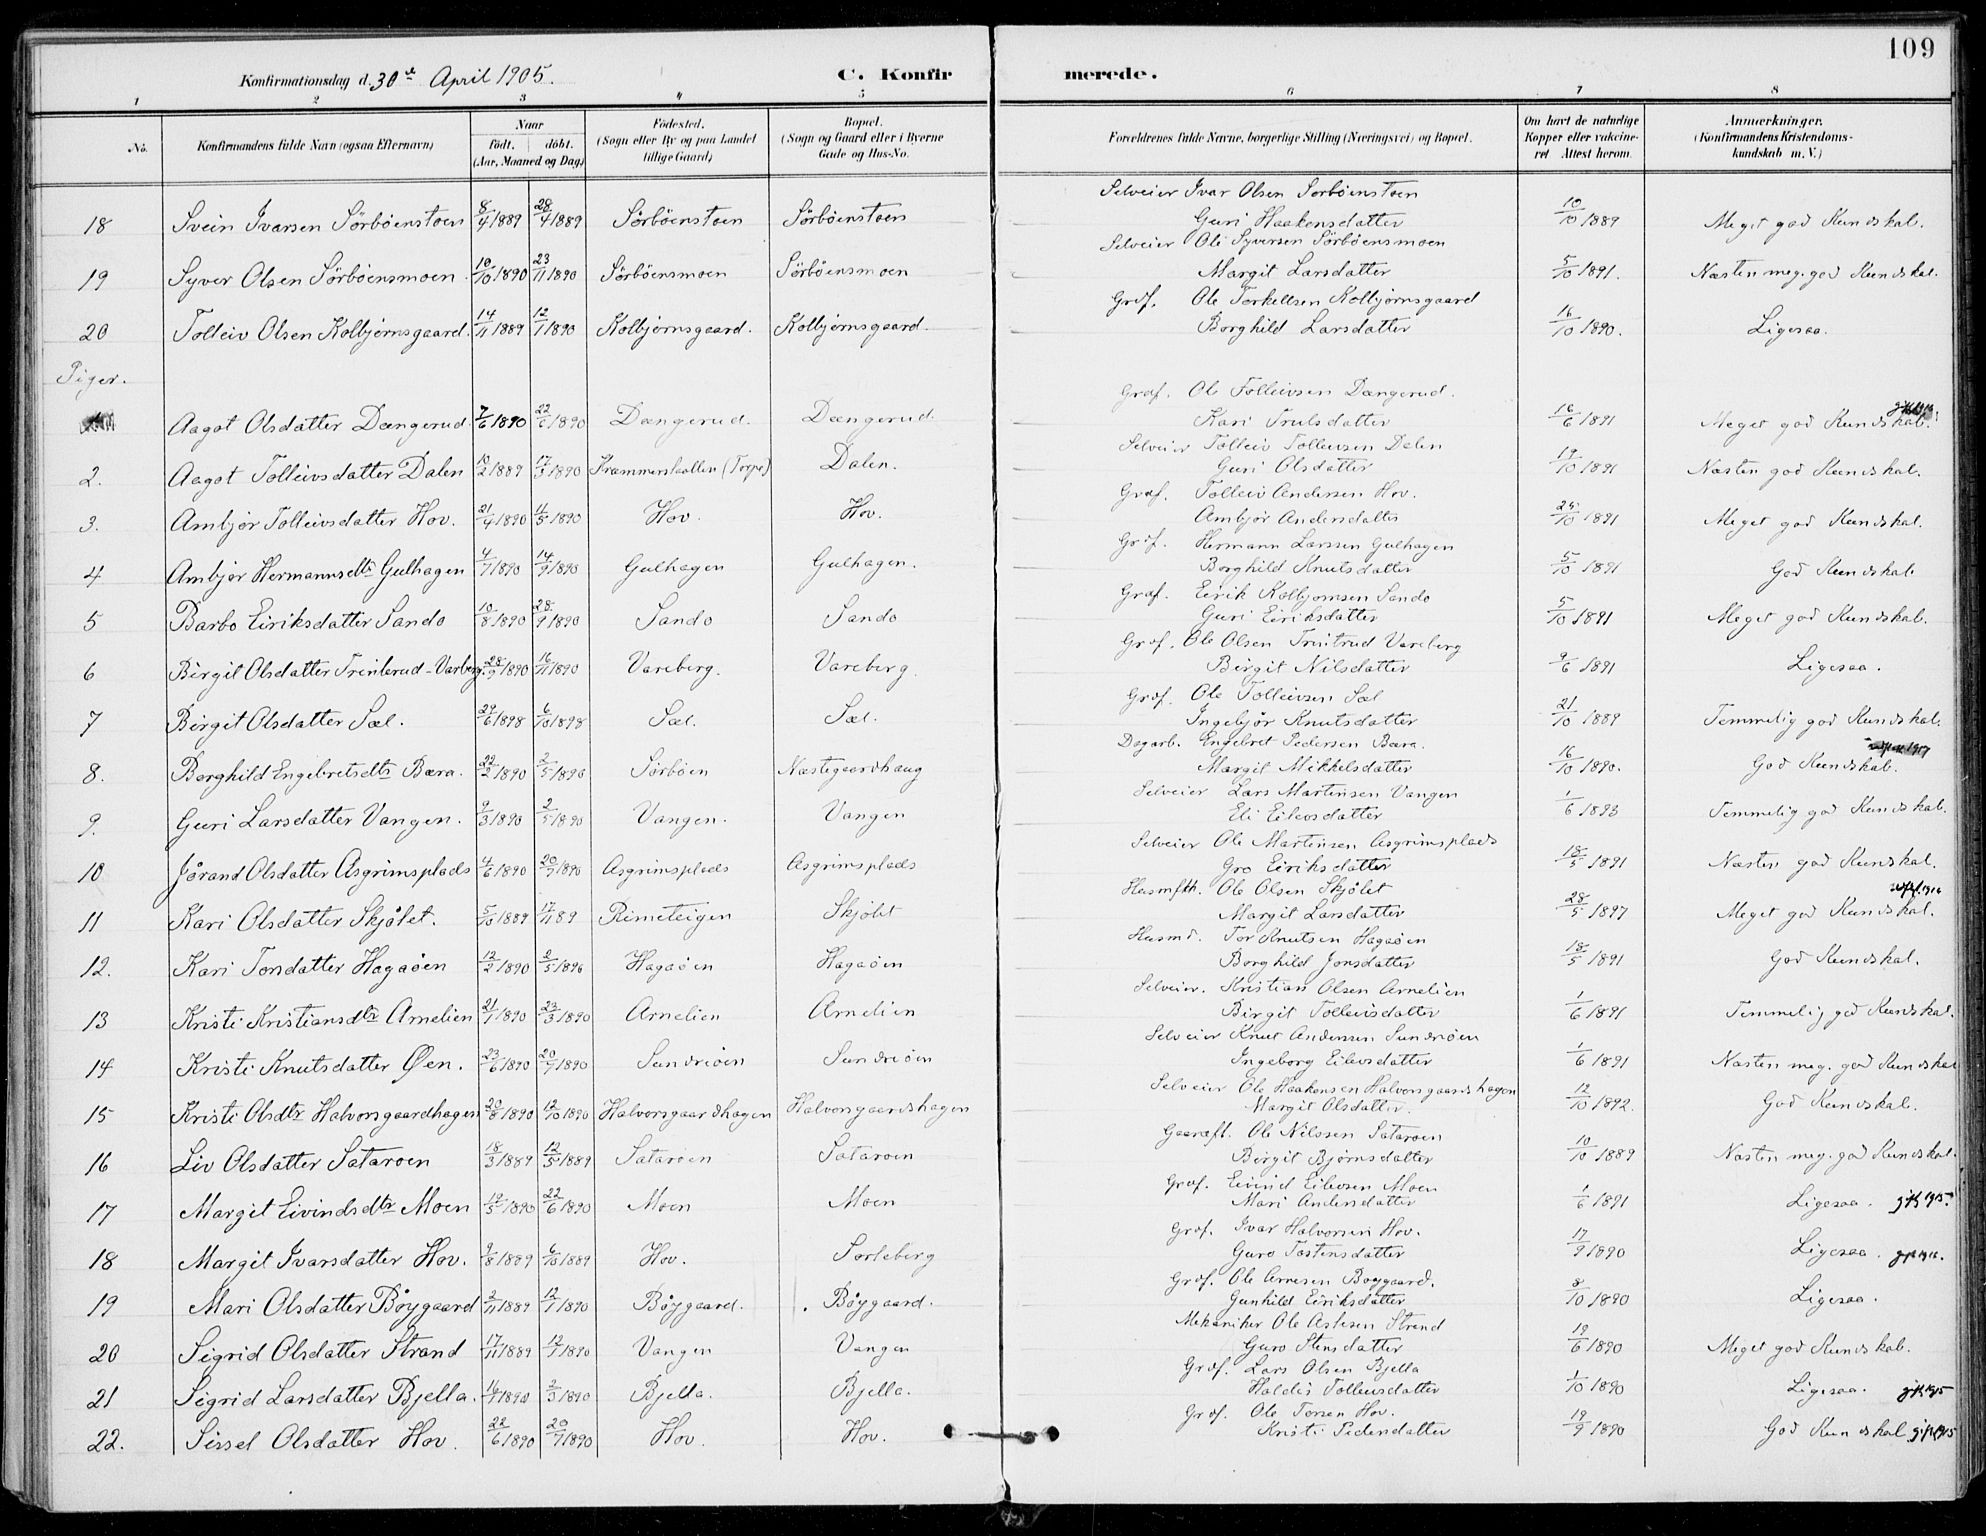 109
Konfirmationsdag d. 30te April 1905.
C. Konfirmerede.
1 2 3 4 5 6 7 8
No.
Konfirmandens fulde Navn (ogsaa Efternavn)
Naar
født. døbt.
(Aar, Maaned og Dag)
Fødested.
(Sogn eller By og paa Landet
tillige Gaard)
Bopæl.
(Sogn og Gaard eller i Byerne
Gade og Hus-No.
Forældrenes fulde Navne, borgerlige Stilling (Næringsvei) og Bopæl.
Om havt de naturlige
Kopper eller vaccine-
ret Attest herom.
Anmærkninger.
(Konfirmandens Kristendoms-
kundskab m. V.)
Selveier Ivar Olsen Sørbøenstøen
18 Svein Ivarsen Sørbøenstøen 8/4 1889 28/4 1889 Sørbøenstøen Sørbøenstøen Guri Haakensdatter 10/10 1889 Meget god Kundskab.
Selveier Ole Syversen Sørbøensmoen
19 Syver Olsen Sørbøensmoen 10/10 1890 23/11 1890 Sørbøensmoen Sørbøensmoen Margit Larsdatter 5/10 1891. Næsten meg. god Kundskab.
Grdf. Ole Torkelsen Kolbjørnsgaard
20 Tolleiv Olsen Kolbjørnsgaard. 14/11 1889 12/1 1890 Kolbjørnsgaard. Kolbjørnsgaard. Borghild Larsdatter 16/10 1890. Ligesaa.
Piger.
Grdf. Ole Tolleivsen Dængerud.
Aagot Olsdatter Dængerud 7/6 1890 22/6 1890 Dængerud. Dængerud. Kari Trulsdatter 16/6 1891 Meget god Kundskab.
Selveier Tolleiv Tolleivsen Dalen
2. Aagot Tolleivsdatter Dalen 10/2 1889 17/3 1890 (Torpe) Dalen. Guri Olsdatter 19/10 1891 Næsten god Kundskab.
Grdf. Tolleiv Andersen Hov.
3. Ambjør Tolleivsdatter Hov. 21/4 1890 4/5 1890 Hov. Hov. Ambjør Andersdatter 25/10 1891 Meget god Kundskab.
Grdf. Hermann Larssen Gulhagen
4 Ambjør Hermannsdtr Gulhagen 4/7 1890 14/9 1890 Gulhagen Gulhagen. Borghild Knutsdatter 5/10 1891 God Kundskab
Grdf. Eirik Kolbjørnsen Sando
5 Barbo Eiriksdatter Sando 10/8 1890 28/9 1890 Sando Sando Guri Eiriksdatter 5/10 1891 Meget god Kundskab.
Grdf. Ole Olsen Trintrud Vareberg
6 Birgit Olsdatter Trinterud-Varberg. 28/9 1890 16/11 1890 Vareberg. Vareberg. Birgit Nilsdatter 9/6 1891 Ligesaa.
Grdf. Ole Tolleivsen Sæl
7 Birgit Olsdatter Sæl. 29/6 1898 6/10 1898 Sæl. Sæl. Ingebjør Knutsdatter 21/10 1889 Temmelig god Kundskab.
Dagarb. Engebret Pedersen Bæra.
8. Borghild Engebretsdtr Bæra. 22/2 1890 2/5 1890 Sørbøen Næstegaardhaug Margit Mikkelsdatter 16/10 1890. God Kundskab.
Selveier Lars Martinsen Vangen
9. Guri Larsdatter Vangen. 9/3 1890 2/5 1890 Vangen. Vangen Eli Eilevsdatter 1/6 1893 Temmelig god Kundskab.
Selveier Ole Martinsen Asgrimsplads
10 Jørand Olsdatter Asgrimsplads 4/6 1890 20/7 1890 Asgrimsplads Asgrimsplads Gro Eiriksdatter 18/5 1891 Næsten god Kundskab.
Husmfkh. Ole Olsen Skjølet
11 Kari Olsdatter Skjølet. 5/10 1889 17/11 89 Rimeteigen Skjølet Margit Larsdatter 28/5 1897 Meget god Kundskab.
Husmd. Tor Knutsen Hagaøen
12. Kari Torsdatter Hagaøen 12/2 1890 2/5 1890 Hagaøen Hagaøen Borghild Jonsdatter 18/5 1891 God Kundskab.
Selveier. Kristian Olsen Arnelien
13 Kristi Kristiansdtr Arnelien 21/1 1890 23/3 1890 Arnelien Arnelien Birgit Tolleivsdatter 1/6 1891 Temmelig god Kundskab.
Selveier Knut Andersen Sundreøen
14 Kristi Knutsdatter Øen. 23/6 1890 20/7 1890 Sundreøen Sundreøen Ingeborg Eilevsdatter 1/6 1891 Næsten meg. god Kundskab
Selveier Ole Haakensen Halvorsgaardshagen
15 Kristi Olsdtr Halvorsgaardhagen 20/8 1890 12/10 1890 Halvorsgaardhagen Halvorsgaardshagen Margit Olsdatter. 12/10 1892. God Kundskab.
Ole Nilssen Sataroen
16 Liv Olsdatter Sataroen 18/3 1889 12/5 1889 Sataroen Sataroen Birgit Bjørnsdatter 10/10 1889 Næsten meg. god Kundskab.
Grdf. Eivind Eilevsen Moen
17 Margit Eivindsdtr Moen 19/5 1890 22/6 1890 Moen Moen Mari Andersdatter 1/6 1891 Ligesaa. gift 1915
Grdf. Ivar Halvorsen Hov.
18 Margit Ivarsdatter Hov. 9/8 1889 6/10 1889 Hov. Sørleberg Guro Tostensdatter 17/9 1890 Ligesaa.
Grdf. Ole Arnesen Bøygaard.
19 Mari Olsdatter Bøygaard 2/11 1889 12/1 1890 Bøygaard. Bøygaard. Gunhild Eiriksdatter 8/10 1890 Ligesaa.
Mekaniker Ole Aslesen Strand
20 Sigrid Olsdatter Strand 17/11 1889 12/1 1890 Vangen Vangen Guro Stensdatter 19/6 1890 Meget god Kundskab.
Grdf. Lars Olsen Bjella
21 Sigrid Larsdatter Bjella. 1890 2/3 1890 Bjella. Bjella. Haldis Tolleivsdatter 1/10 1890 Ligesaa. gift 1915
Grdf. Ole Torsen Hov.
22. Sissel Olsdatter Hov. 22/6 1890 20/7 1890 Hov. Hov. Kristi Pedersdatter 19/9 1890 God Kundskab gift 1915